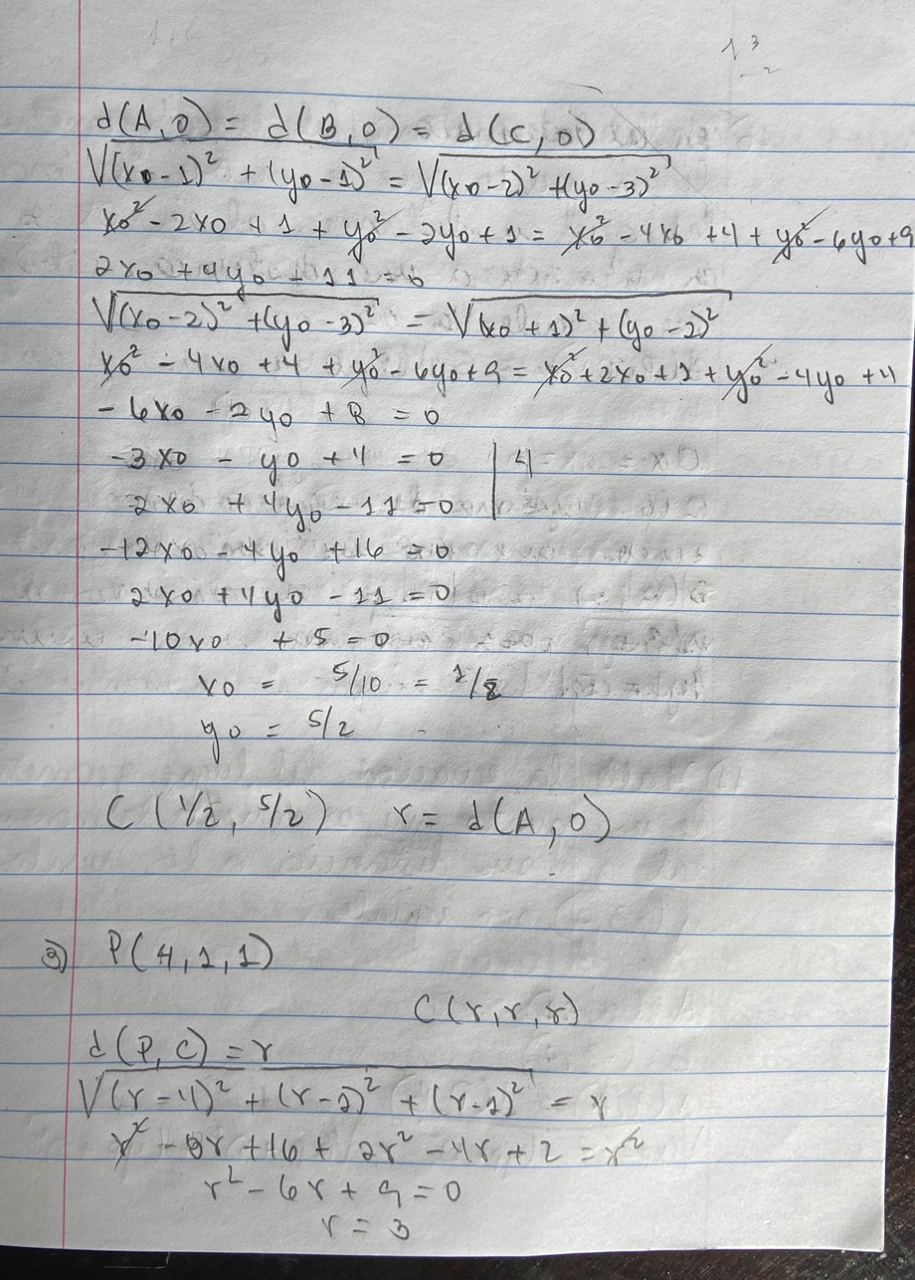 d(A,0) = d(B,0) = d(C,0)
√(x0-1)² + (y0-1)² = √(x0-2)² + (y0-3)²
x0² - 2x0 + 1 + y0² - 2y0 + 1 = x0² - 4x0 + 4 + y0² - 6y0 + 9
2x0 + 4y0 - 11 = 0
√(x0-2)² + (y0-3)² = √(x0+1)² + (y0-2)²
x0² - 4x0 + 4 + y0² - 6y0 + 9 = x0² + 2x0 + 1 + y0² - 4y0 + 4
- 6x0 - 2y0 + 8 = 0
-3x0 - y0 + 4 = 0 | 4
2x0 + 4y0 - 11 = 0
-12x0 - 4y0 + 16 = 0
2x0 + 4y0 - 11 = 0
-10x0 + 5 = 0
x0 = 5/10 = 1/2
y0 = 5/2
C(1/2, 5/2) r = d(A,0)
3) P(4,1,1)
C(r,r,r)
d(P,C) = r
√(r-4)² + (r-1)² + (r-1)² = r
r² - 8r + 16 + 2r² - 4r + 2 = r²
r² - 6r + 9 = 0
r = 3